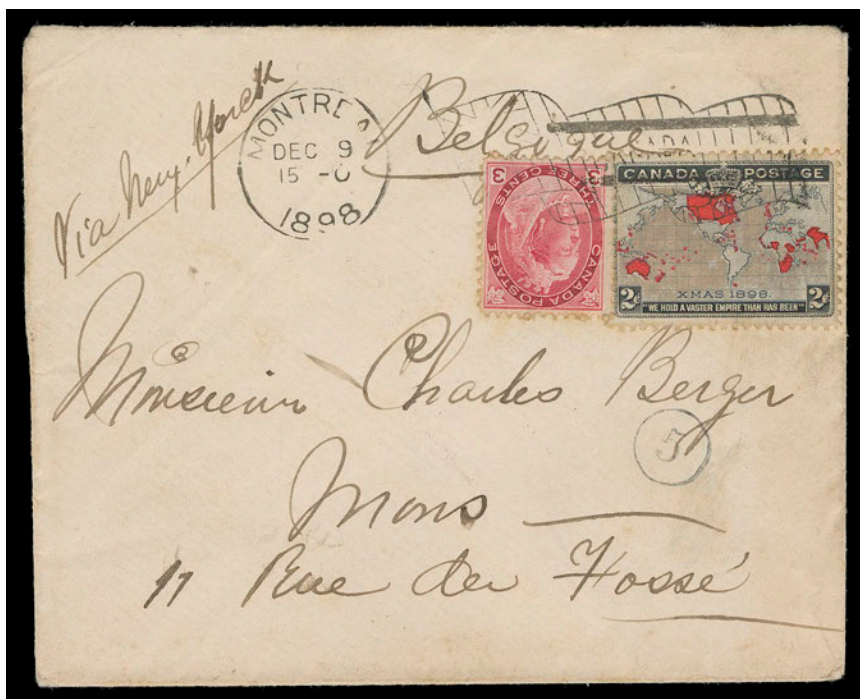 Via New-Yorck
MONTREA
DEC 9
15 - 0
1898
Belgique
THREE CENTS
3 3
CANADA POSTAGE
CANADA POSTAGE
XMAS 1898.
2¢ 2¢
"WE HOLD A VASTER EMPIRE THAN HAS BEEN"
Monsieur Charles Berger
5
Mons
17 Rue des Fossé